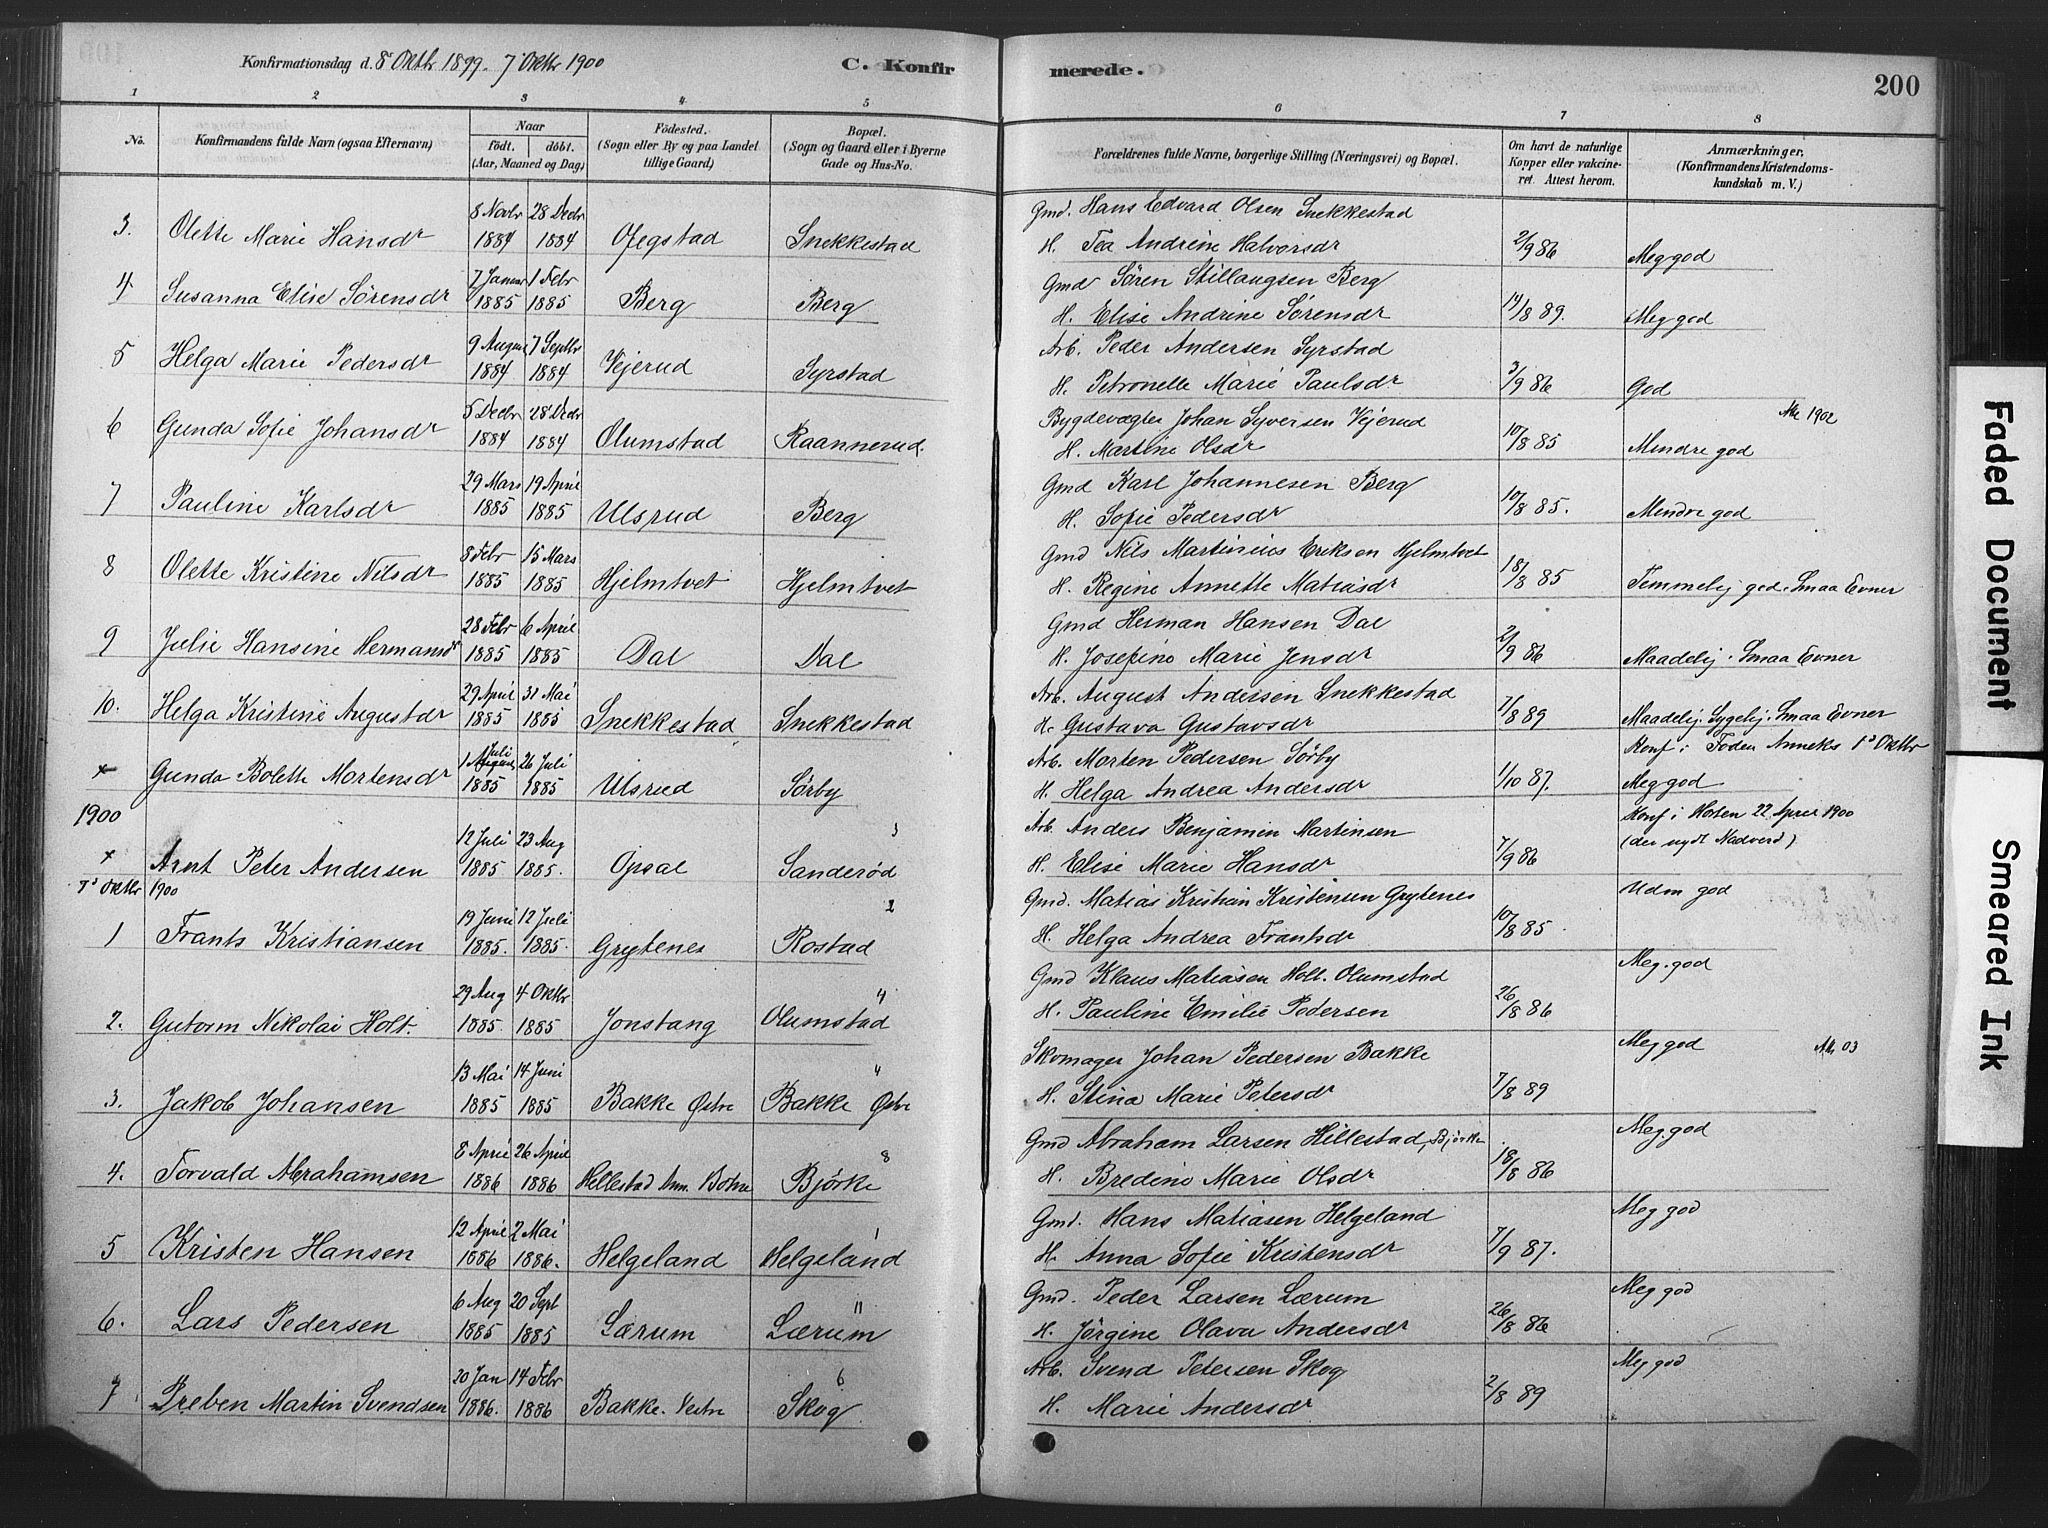 Konfirmationsdag d. 8 Oktbr 1899. 7 Oktbr 1900
C. Konfirmerede.
200
1 2 3 4 5 6 7 8
No.
Konfirmandens fulde Navn (ogsaa Efternavn)
Naar
födt. döbt.
(Aar, Maaned og Dag)
Födested.
(Sogn eller By og paa Landet tillige Gaard)
Bopæl.
(Sogn og Gaard eller i Byerne Gade og Hus-No.
Forældrenes fulde Navne, borgerlige Stilling (Næringsvei) og Bopæl.
Om havt de naturlige Kopper eller vakcineret. Attest herom.
Anmærkninger,
(Konfirmandens Kristendomskundskab m. V.)
3. Olette Marie Hansdr 8 Novbr 1884 28 Decbr 1884 Ofegstad Snekkestad Gmd. Hans Edvard Olsen Snekkestad
H. Tea Andrine Halvorsdr 2/9 86 Meg god
4 Susanna Elise Sørensdr 7 Januar 1885 1 Febr 1885 Berg Berg Gmd Sören Stillaugsen Berg
H. Elise Andrine Sørensdr 14/8 89. Meg god
5 Helga Marie Pedersdr 9 August 1884 7 Septbr 1884 Vejerud Syrstad Arb. Peder Andersen Syrstad
H. Petronelle Marie Paulsdr 3/9 86 God
6 Gunda Sofie Johansdr 5 Decbr 1884 28 Decbr 1884 Olumstad Raannerud. Bygdevægter Johan Syversen Vejerud
H. Martine Olsdr 10/8 85 Mindre god 1902
7 Pauline Karlsdr 29 Mars 1885 19 April 1885 Ulsrud Berg Gmd Karl Johannesen Berg
H. Sofie Pedersdr 10/8 85. Mindre god
8 Olette Kristine Nilsdr 8 Febr 1885 15 Mars 1885 Hjelmtvet Hjelmtvet Gmd Nils Martinius Eriksen Hjelmtvet
H. Regine Annette Matiasdr 18/8 85 Temmelig god. Smaa Evner
9 Julie Hansine Hermansdr 28 Febr 1885 6 April 1885 Dal Dal Gmd Herman Hansen Dal
H. Josefine Marie Jensdr 2/9 86 Maadelig. Smaa Evner
10. Helga Kristine Augustadr 29 April 1885 31 Mai 1885 Snekkestad Snekkestad Arb. August Andersen Snekkestad
H. Gustava Gustavsdr 7/8 89 Maadelig. Sygelig. Smaa Evner
x Gunda Bolette Mortensdr 1 Juli 1885 26 Juli 1885 Ulsrud Sørby Arb. Morten Pedersen Sörby Konf i Foden Anneks 1s Oktbr
H. Helga Andrea Andersdr 1/10 87. Meg god
1900
x Arnt Peter Andersen 12 Juli 1885 23 Aug 1885. Opsal Sanderød 3 Arb. Anders Benjamin Martinsen Konf i Horten 22 April 1900
H. Elise Marie Hansdr 7/9 86 (der nydt Nadverd)
7s Oktbr 1900
1 Frants Kristiansen 19 Juni 1885. 12 Juli 1885. Grytenes Rostad 2 Gmd. Matias Kristian Kristensen Grytenes Udm god
H. Helga Andrea Frantsdr 10/8 85
2. Gutorm Nikolai Holt. 29 Aug 1885. 4 Oktbr 1885 Jonstang Olumstad 4 Gmd Klaus Matiasen Holt. Olumstad Meg. god
H. Pauline Emilie Pedersen 26/8 86
3. Jakob Johansen 13 Mai 1885 14 Juni 1885 Bakke Østre Bakke Østre 4 Skomager Johan Pedersen Bakke Meg god 03
H. Stina Marie Petersdr 7/8 89
4. Torvald Abrahamsen 8 April 1886 26 April 1886 Hellestad Ann. Botne Bjørke 8 Gmd Abraham Larsen Hillestad, Bjørke Meg. god
H. Bredine Marie Olsdr 18/8 86
5 Kristen Hansen 12 April 1886 2 Mai 1886. Helgeland Helgeland 1 Gmd. Hans Matiasen Helgeland Meg god
H. Anna Sofie Kristensdr 7/9 87.
6. Lars Pedersen 6 Aug 1885 20 Sept 1885 Lærum Lærum 11 Gmd. Peder Larsen Lærum Meg god
H. Jörgine Olava Andersdr 26/8 86
7 Preben Martin Svendsen 20 Jan 1886. 14 Febr 1886 Bakke. Vestre Skog 6 Arb. Svend Petersen Skog Meg god
H. Marie Andersdr 2/8 89
Faded Document
Smeared Ink